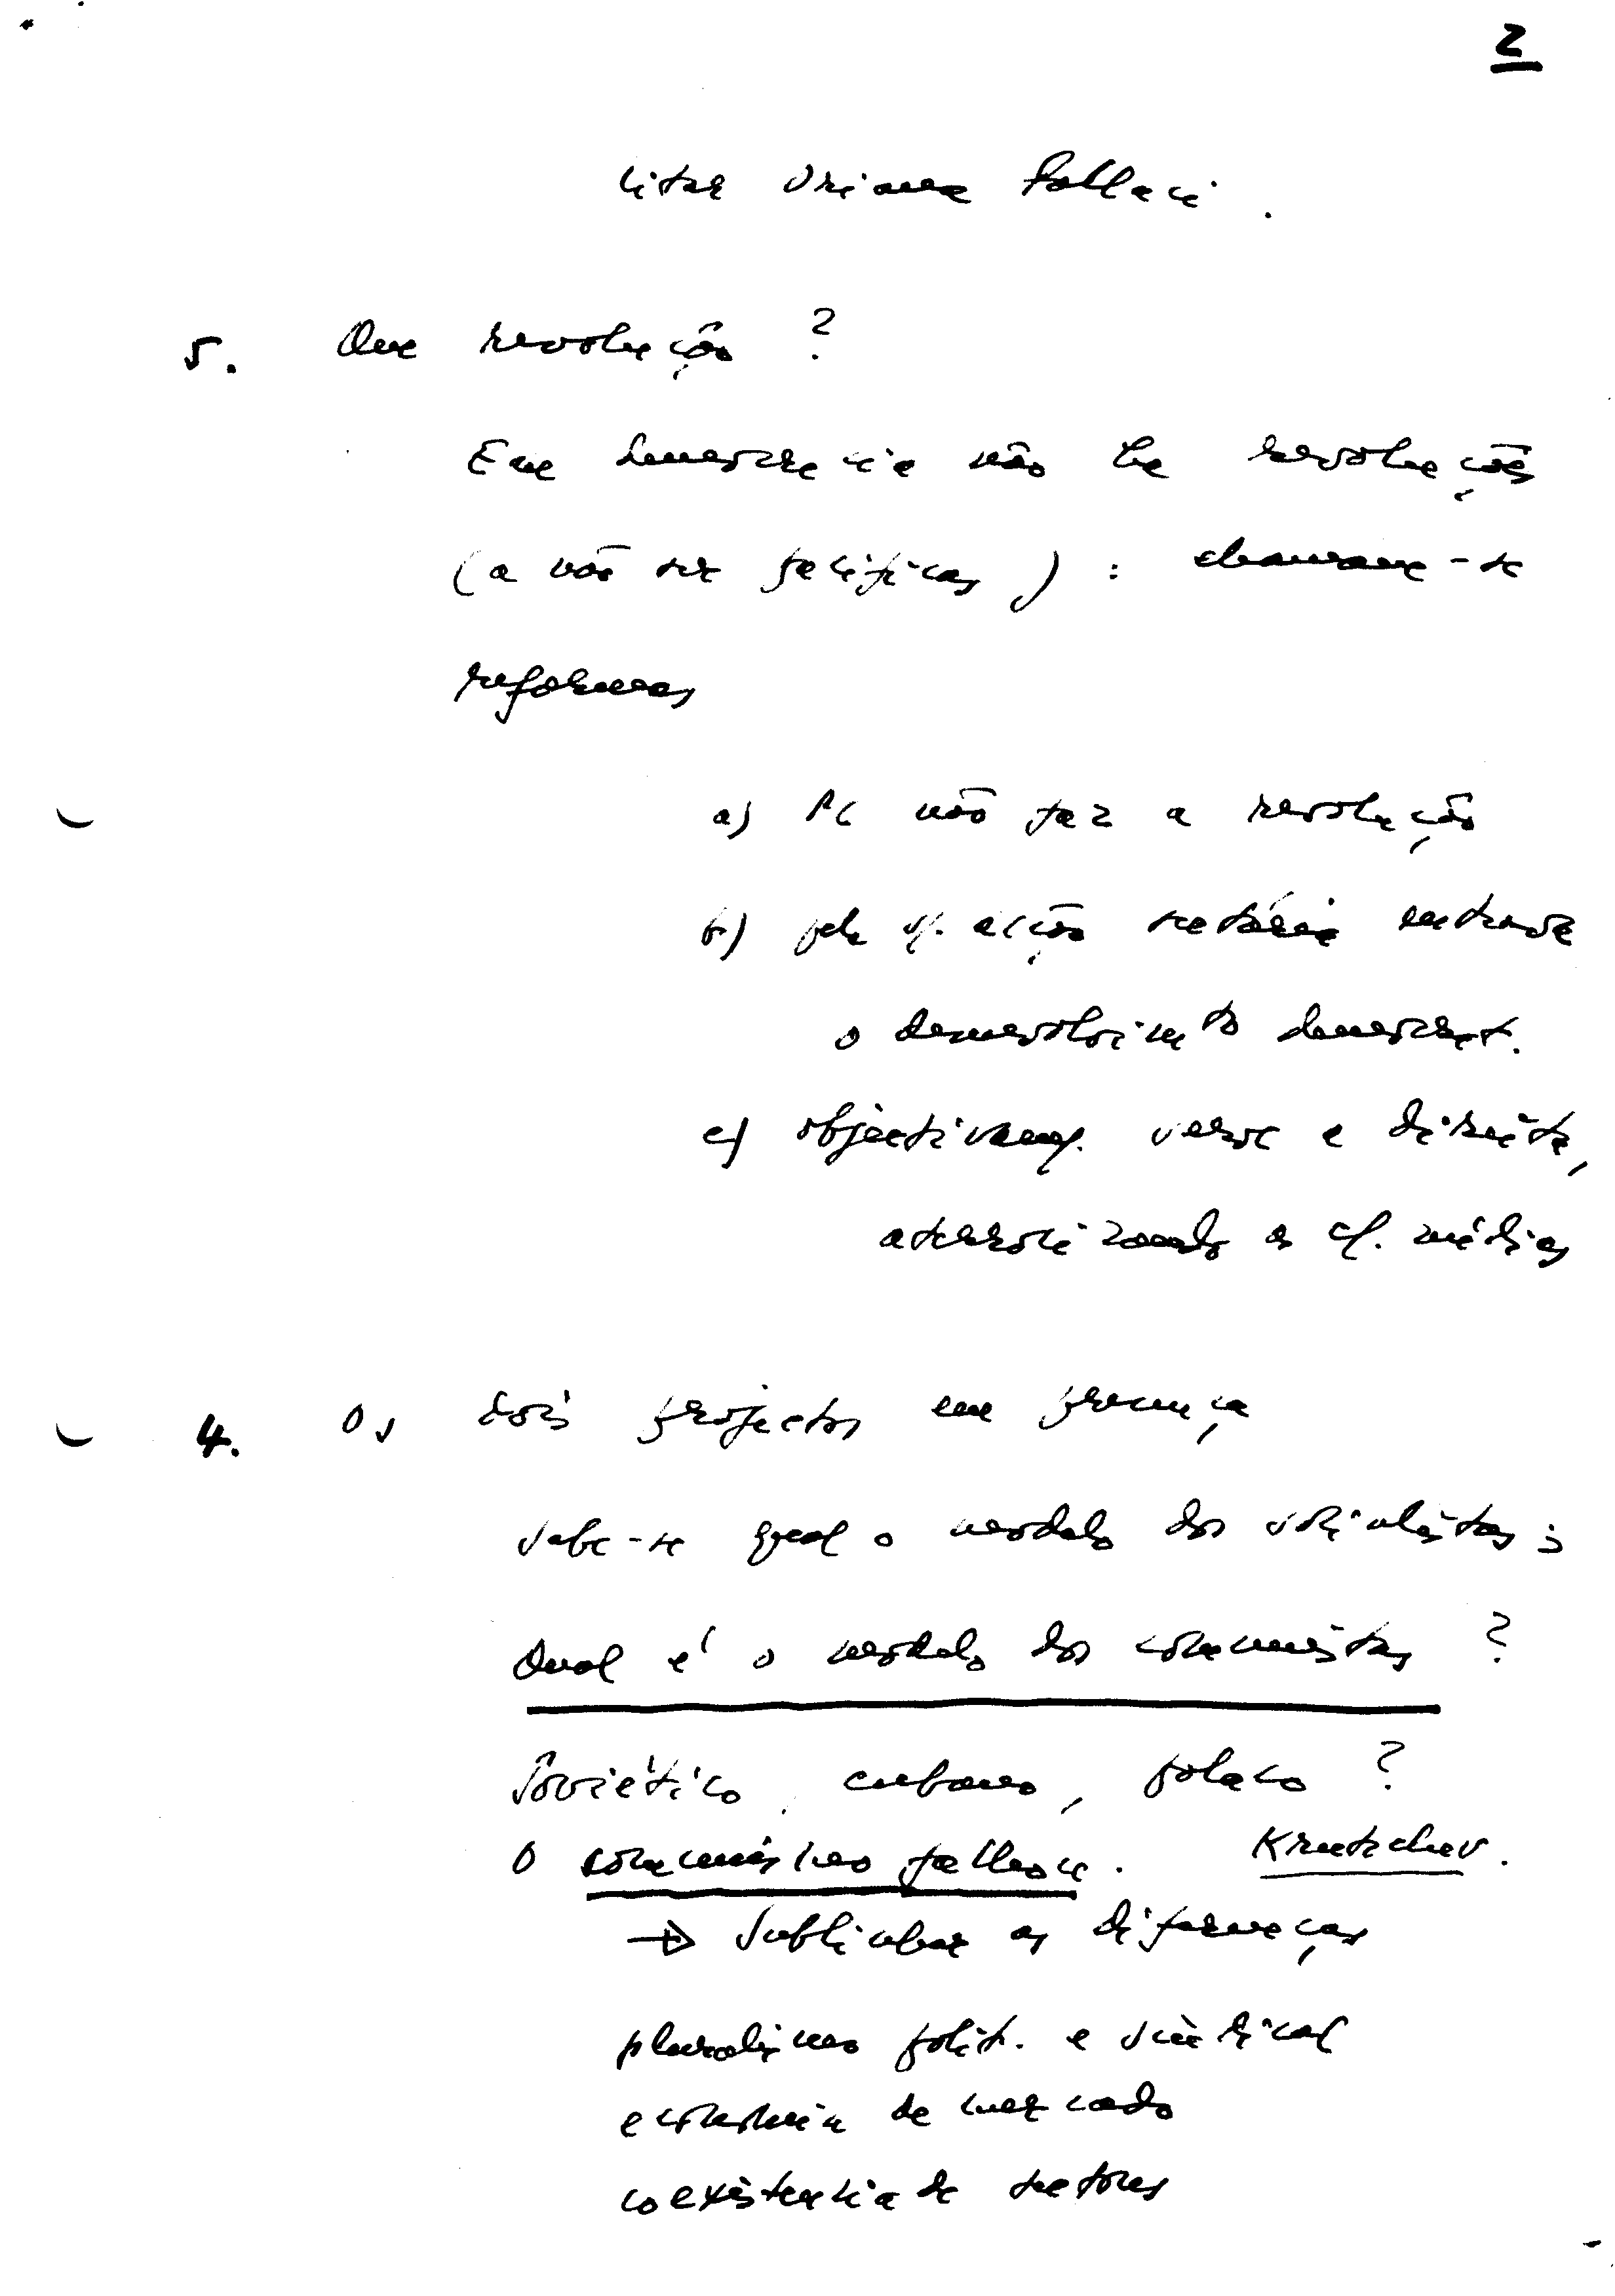 2
Citar Oriana Fallaci.
5. Que revolução ?
Em democracia não há revoluções
(a não ser pacíficas) : chamam-se
reformas
a) PC não faz a revolução
b) pela s/ acção sectária entrava
o desenvolvimto democrat.
c) objectivam. serve a direita,
aterrorizando as cl. médias
4. Os dois projectos em presença
Sabe-se qual o modelo dos socialistas ;
Qual é o modelo dos comunistas ?
Soviético, cubano, polaco ?
O comunismo falhou. Krutchev.
→ Sublinhar as diferenças
pluralismo polit. e sindical
economia de mercado
coexistencia de sectores